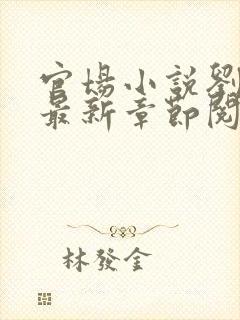 官場小說劉
最新章節閱
林發金